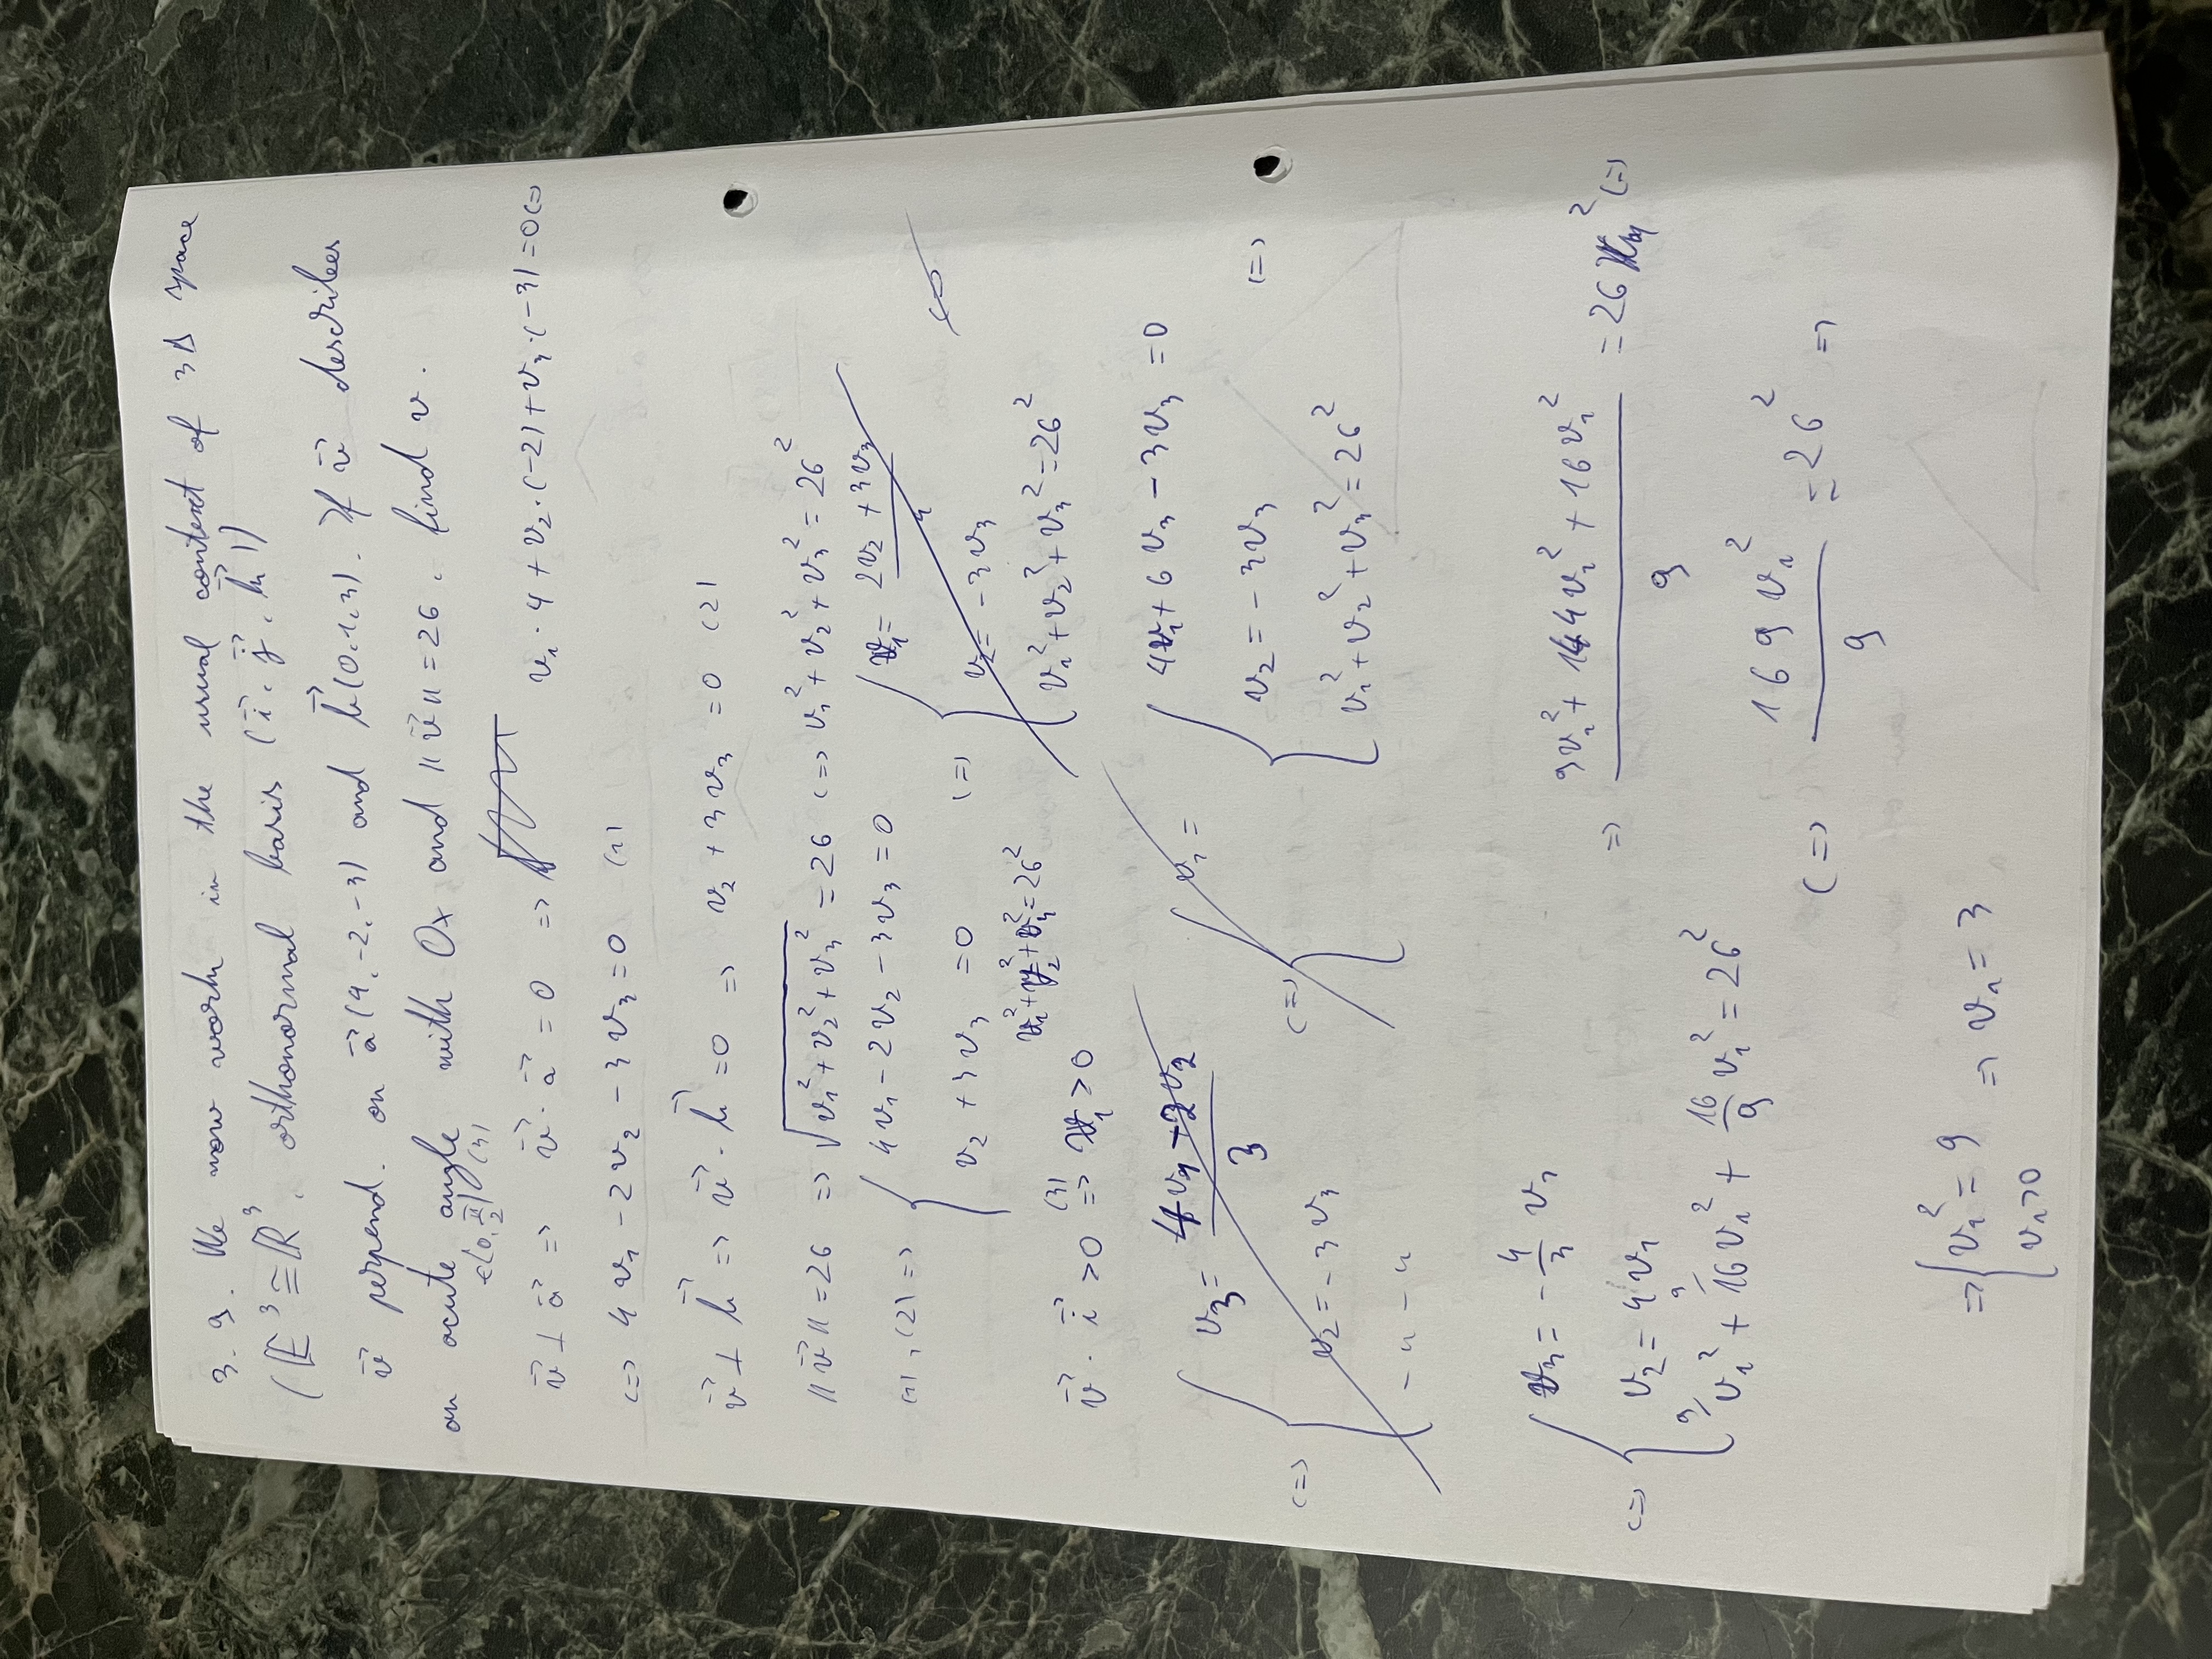 3.9. We now work in the usual context of 3D space
(𝔼³ ≅ ℝ³, orthonormal basis (i⃗, j⃗, k⃗))
v⃗ perpend. on a⃗(4,-2,-3) and b⃗(0,1,3). If v⃗ describes
an acute angle with Ox and ||v⃗|| = 26, find v.
∈(0, π/2) (3)
v⃗ ⊥ a⃗ => v⃗ · a⃗ = 0 => v₁·4 + v₂·(-2) + v₃·(-3) = 0 <=>
<=> 4v₁ - 2v₂ - 3v₃ = 0 (1)
v⃗ ⊥ b⃗ => v⃗ · b⃗ = 0 => v₂ + 3v₃ = 0 (2)
||v⃗|| = 26 => √(v₁² + v₂² + v₃²) = 26 <=> v₁² + v₂² + v₃² = 26²
(1), (2) => { 4v₁ - 2v₂ - 3v₃ = 0
v₂ + 3v₃ = 0
v₁² + v₂² + v₃² = 26²
<=> { v₁ = (2v₂ + 3v₃)/4
v₂ = -3v₃
v₁² + v₂² + v₃² = 26²
<=>
v⃗ · i⃗ > 0 (3) => v₁ > 0
<=> { v₃ = (4v₁ - 2v₂)/3
v₂ = -3v₃
- " - "
<=> { v₁ =
{ 4v₁ + 6v₃ - 3v₃ = 0
v₂ = -3v₃ <=>
v₁² + v₂² + v₃² = 26²
<=> { v₃ = -4/3 v₁
v₂ = 4v₁
9/ v₁² + 9/ 16v₁² + 16/9 v₁² = 26²
=> (9v₁² + 144v₁² + 16v₁²)/9 = 26² <=>
<=> 169v₁²/9 = 26² =>
=> { v₁² = 9 => v₁ = 3
v₁ > 0